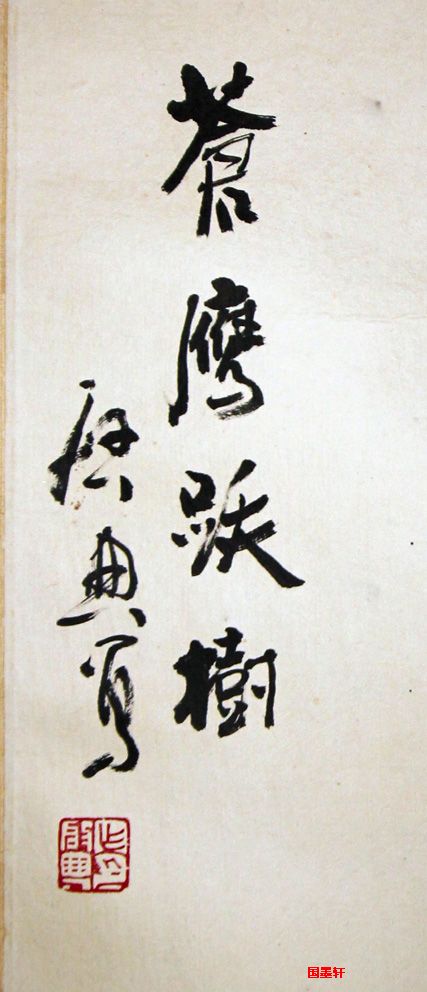 蒼鷹跃樹
启典寫
国墨轩